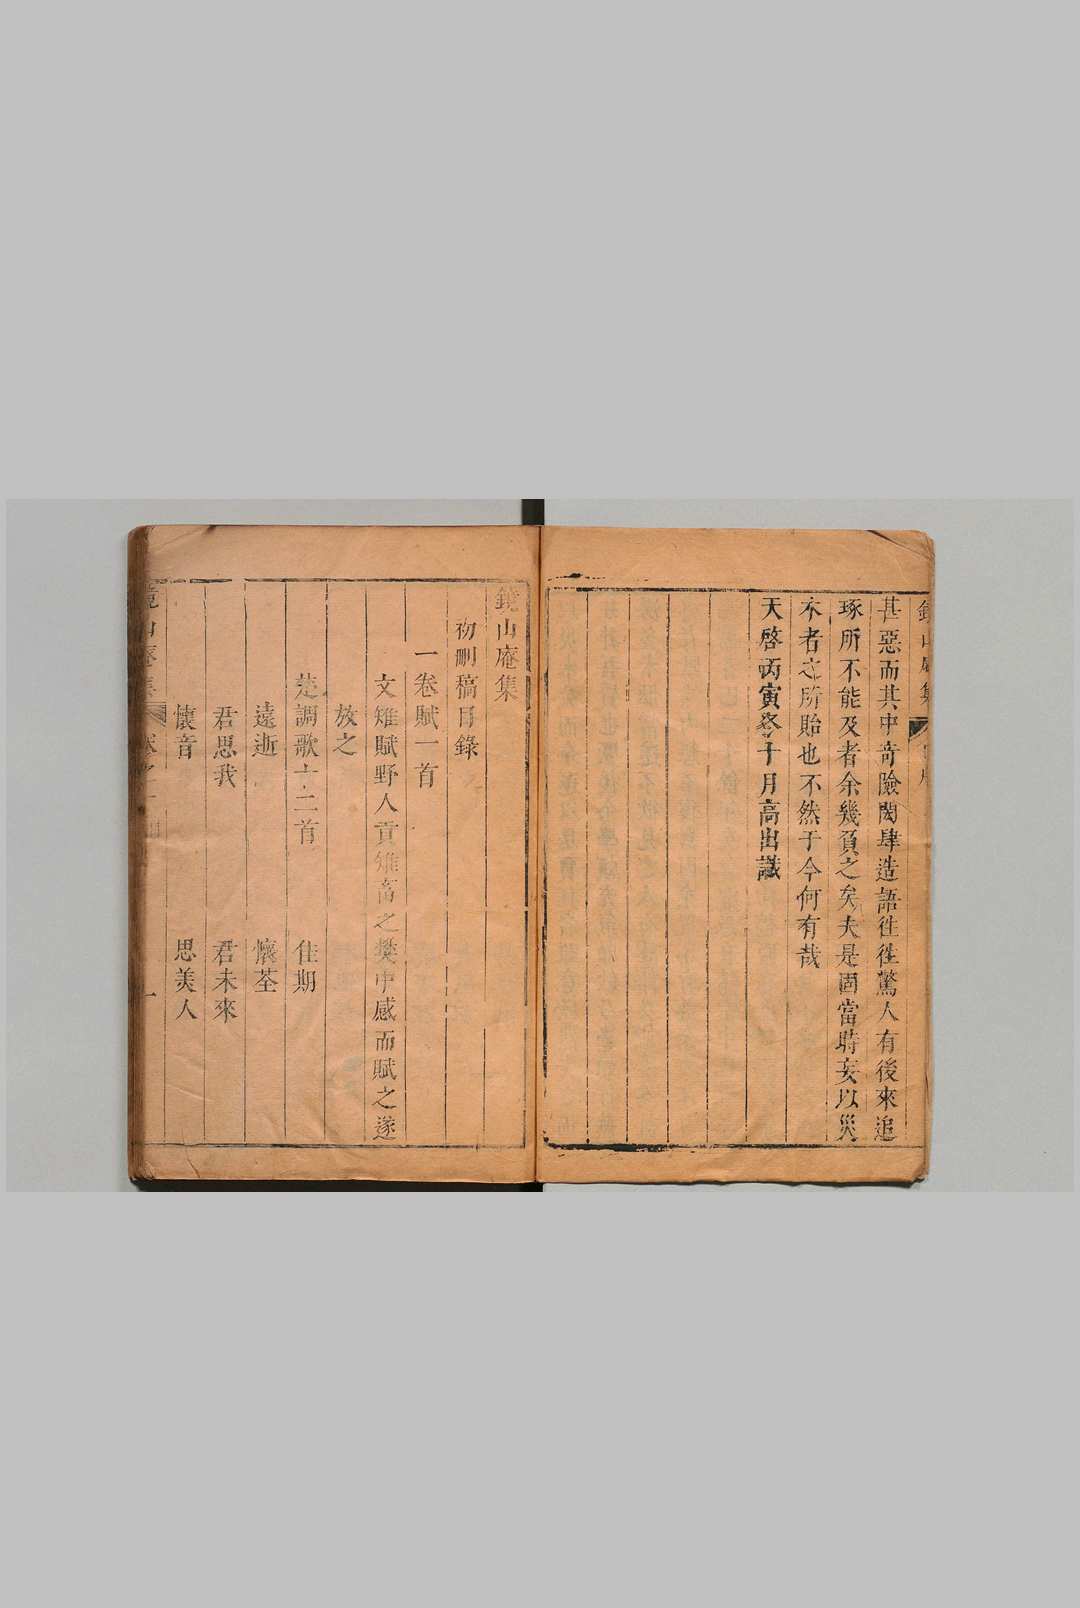 甚惡而其中奇險閎肆造語徃徃驚人有後來追
琢所不能及者余幾負之矣夫是固當時妄以災
木者之所貽也不然于今何有哉
天啓丙寅冬十月高出識
鏡山庵集
初刪稿目錄
一卷賦一首
文雉賦野人貢雉畜之樊中感而賦之遂
放之
楚調歌十二首 佳期
遠逝 懷荃
君思我 君未來
懷音 思美人
鏡山庵集
一